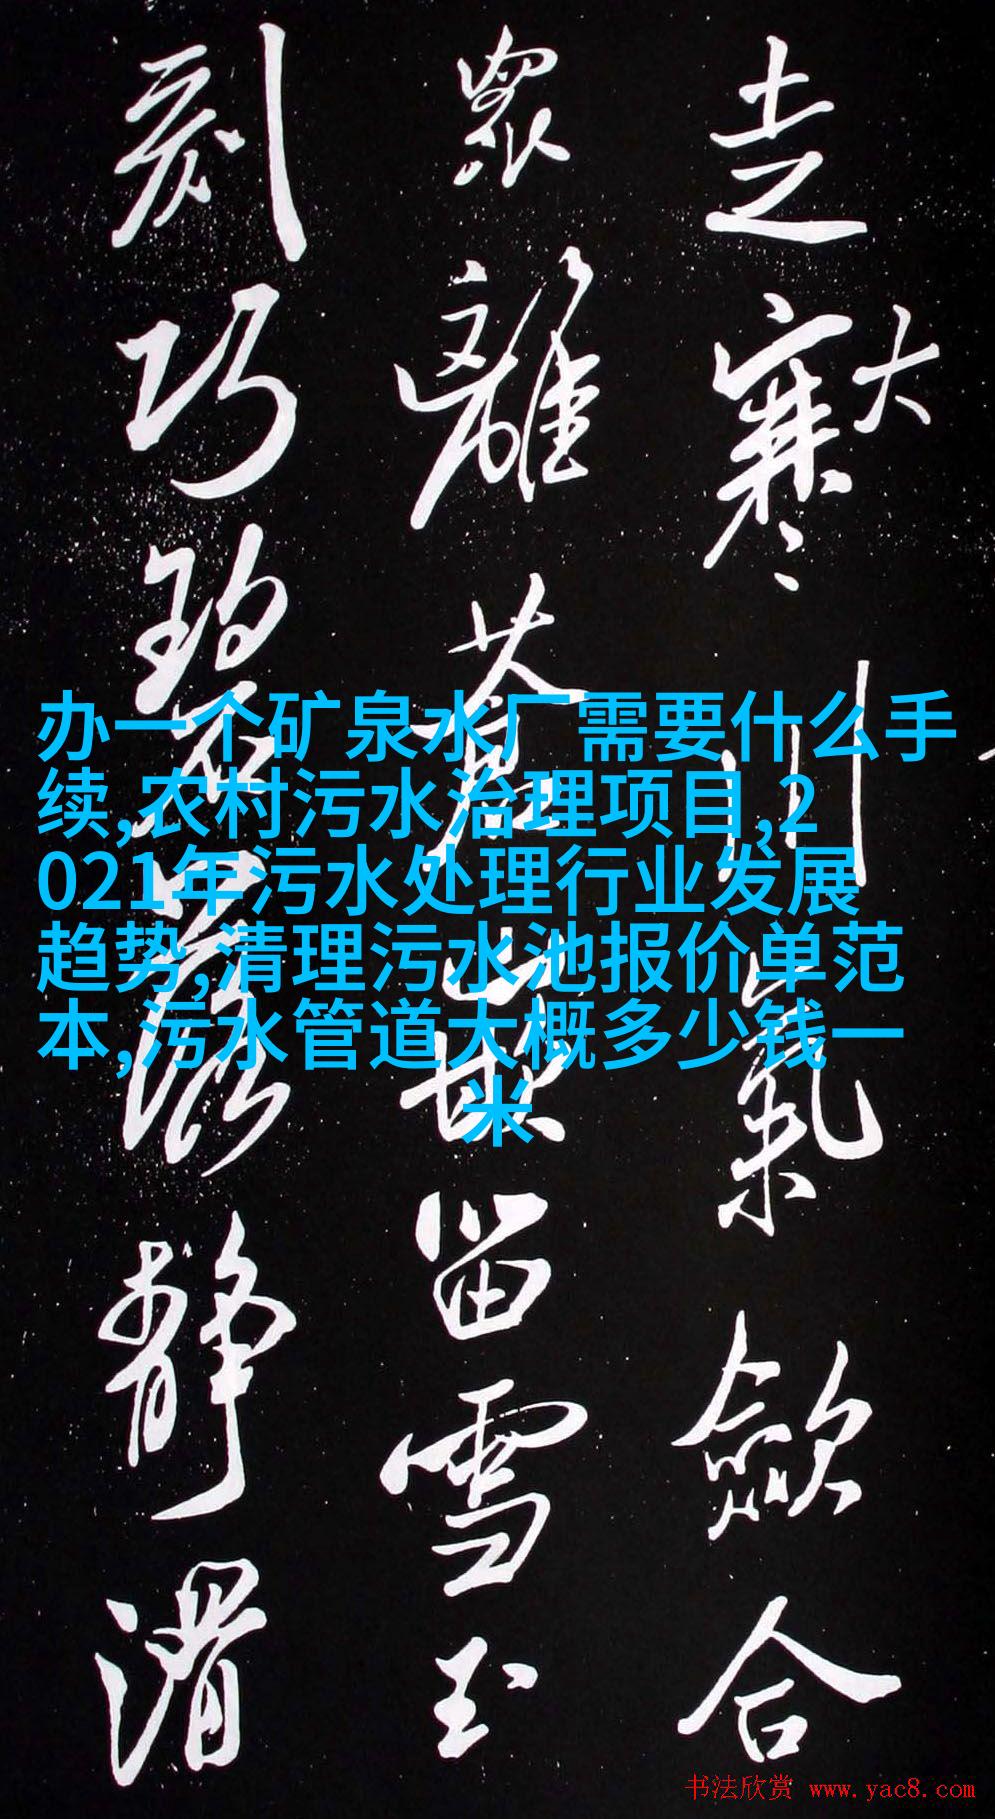 走寒大川氣歛合
眾離
留雪玉
刻巧
靜滑
办一个矿泉水厂需要什么手
续,农村污水治理项目,2
021年污水处理行业发展
趋势,清理污水池报价单范
本,污水管道大概多少钱一
米
书法欣赏 www.yac8.com